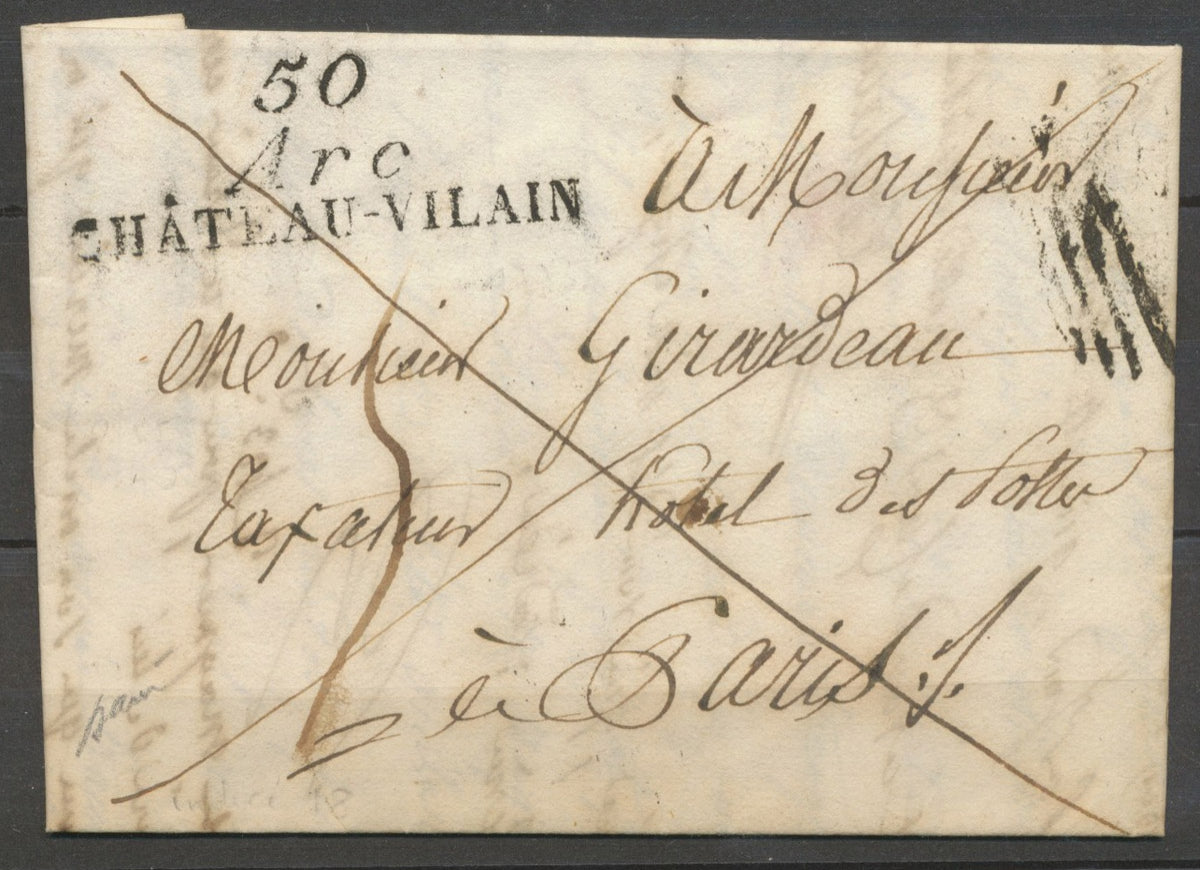 50
Arc
CHÂTEAU-VILAIN
à Monsieur
Monsieur Girardeau
Taxateur hôtel des Postes
à Paris